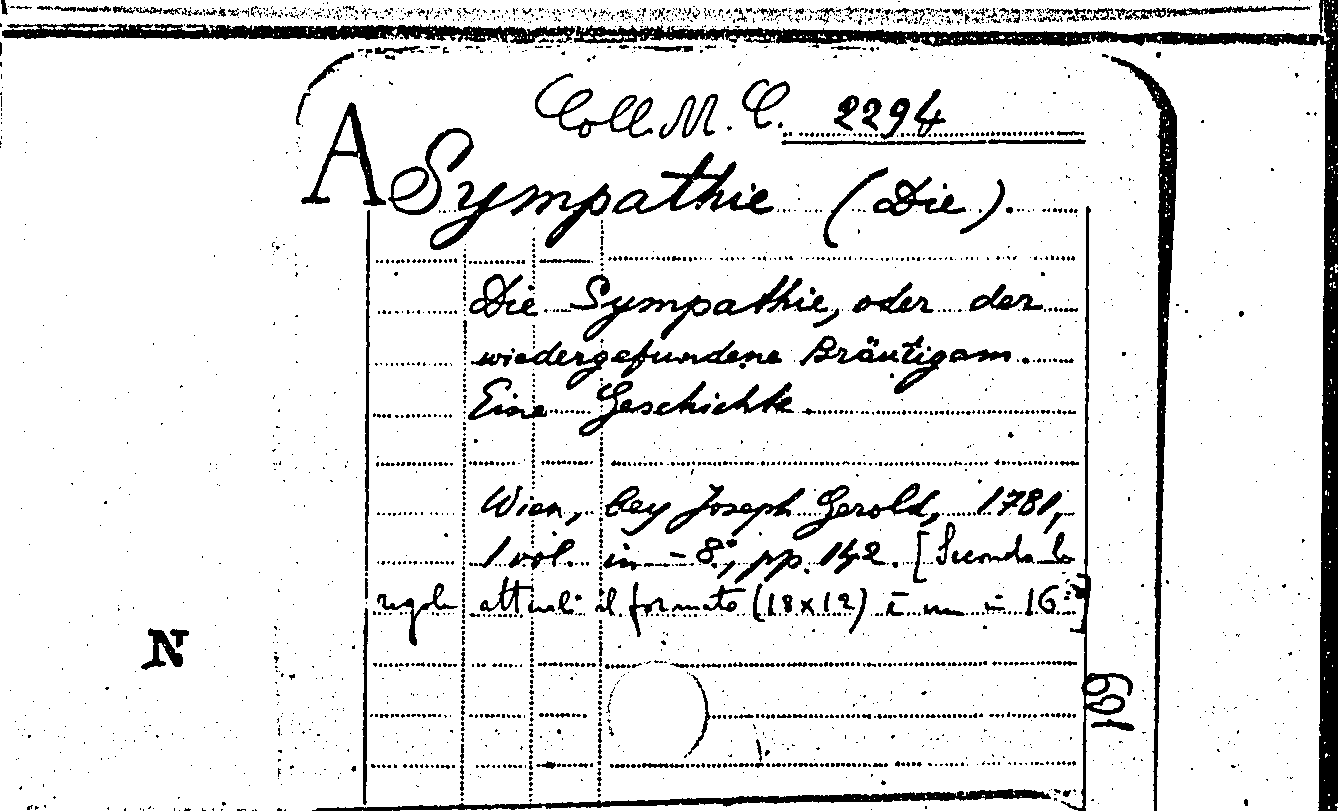 Coll. M. C. 2294
A
Sympathie (Die).
Die Sympathie, oder der
wiedergefundene Bräutigam.
Eine Geschichte.
Wien, bey Joseph Gerold, 1781,
1 vol. in-8°, pp. 142. [Secondo le
regole attuali il formato (18x12) è un in 16°]
N
169